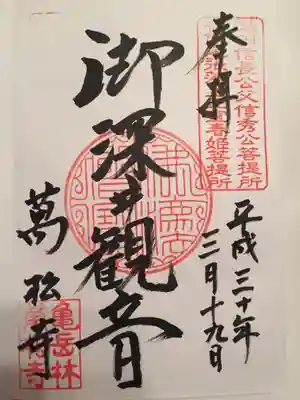 奉拝
信長公父信秀公菩提所
春姫菩提所
平成三十年
二月十九日
御深井観音
萬松寺
亀岳林